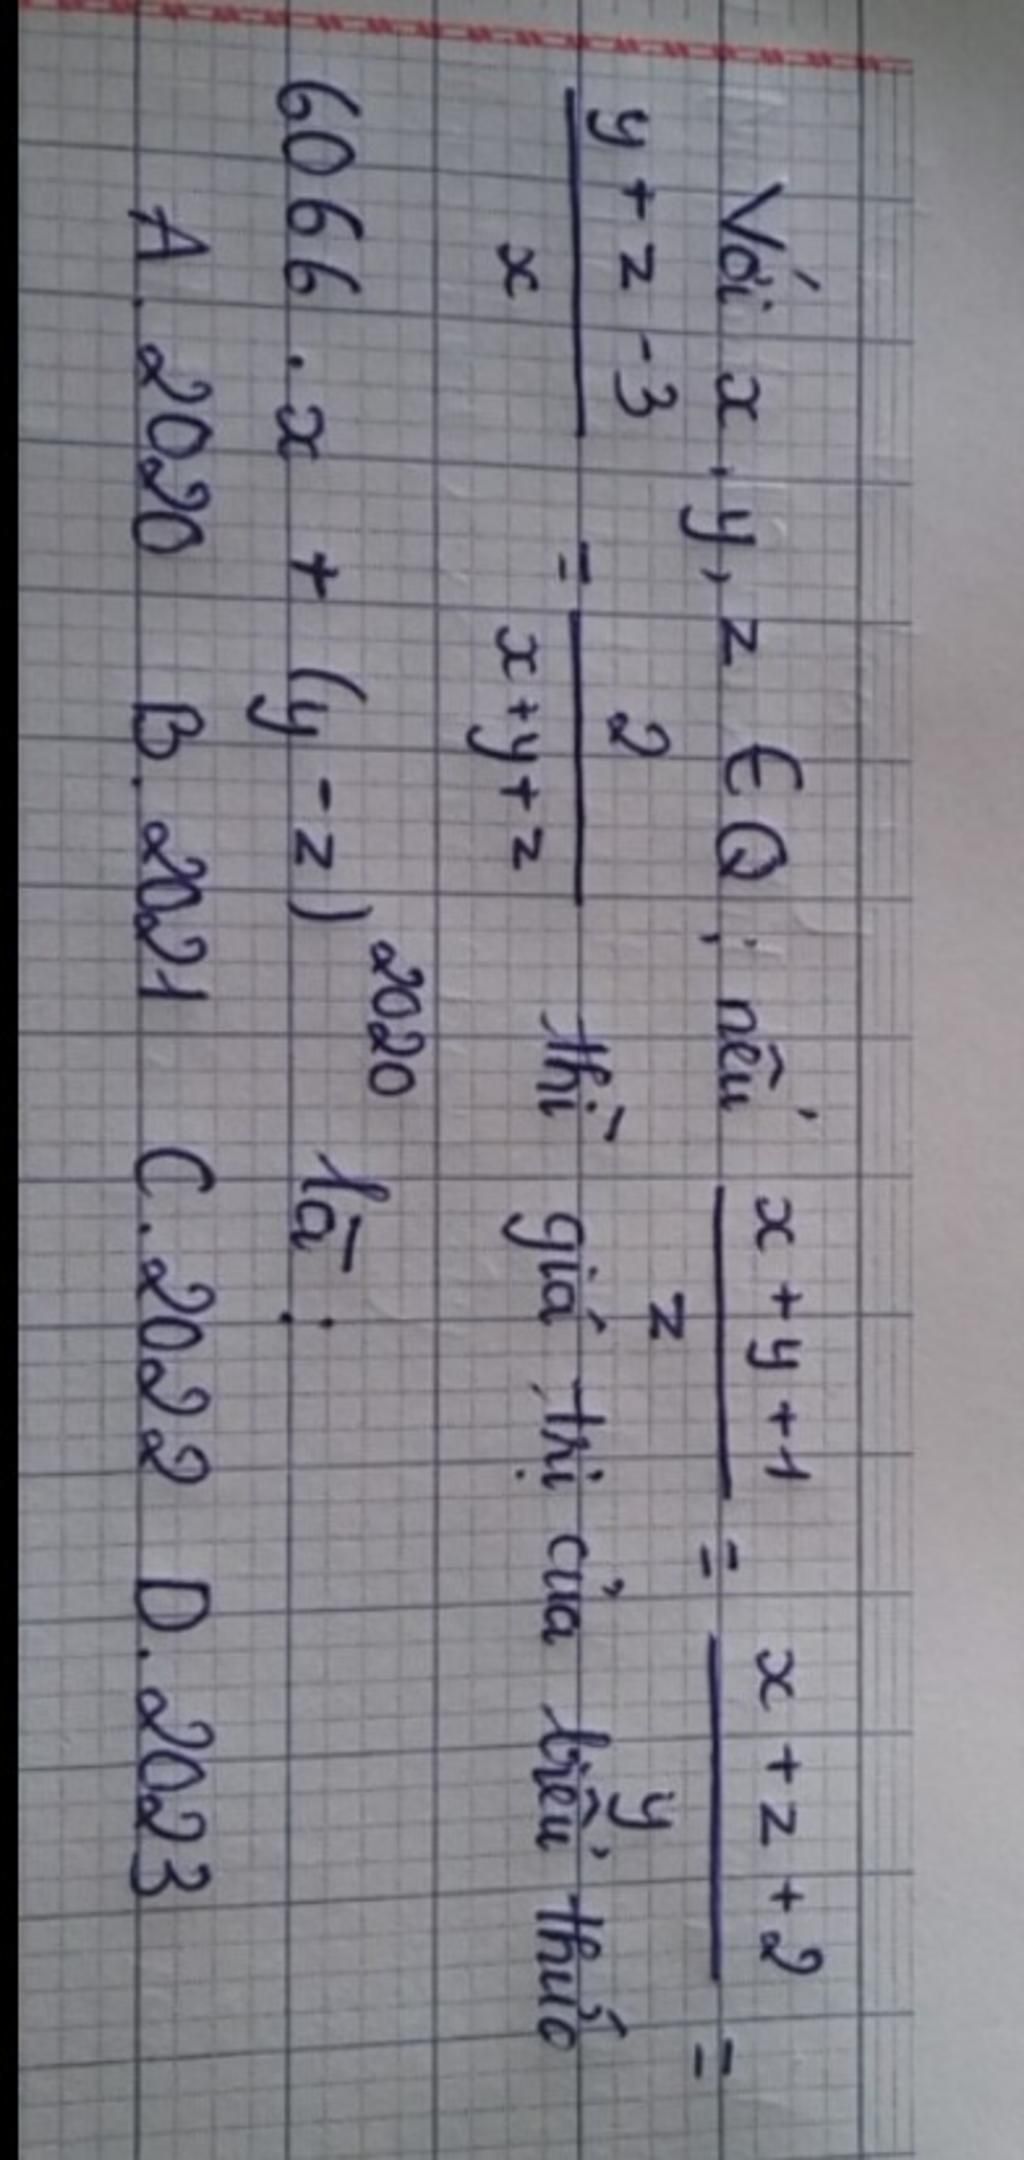 Với x, y, z ∈ Q; nếu (x + y + 1)/z = (x + z + 2)/y =
(y + z - 3)/x = 2/(x + y + z) thì giá thị của biểu thức
6066 . x + (y - z)^2020 là :
A. 2020 B. 2021 C. 2022 D. 2023